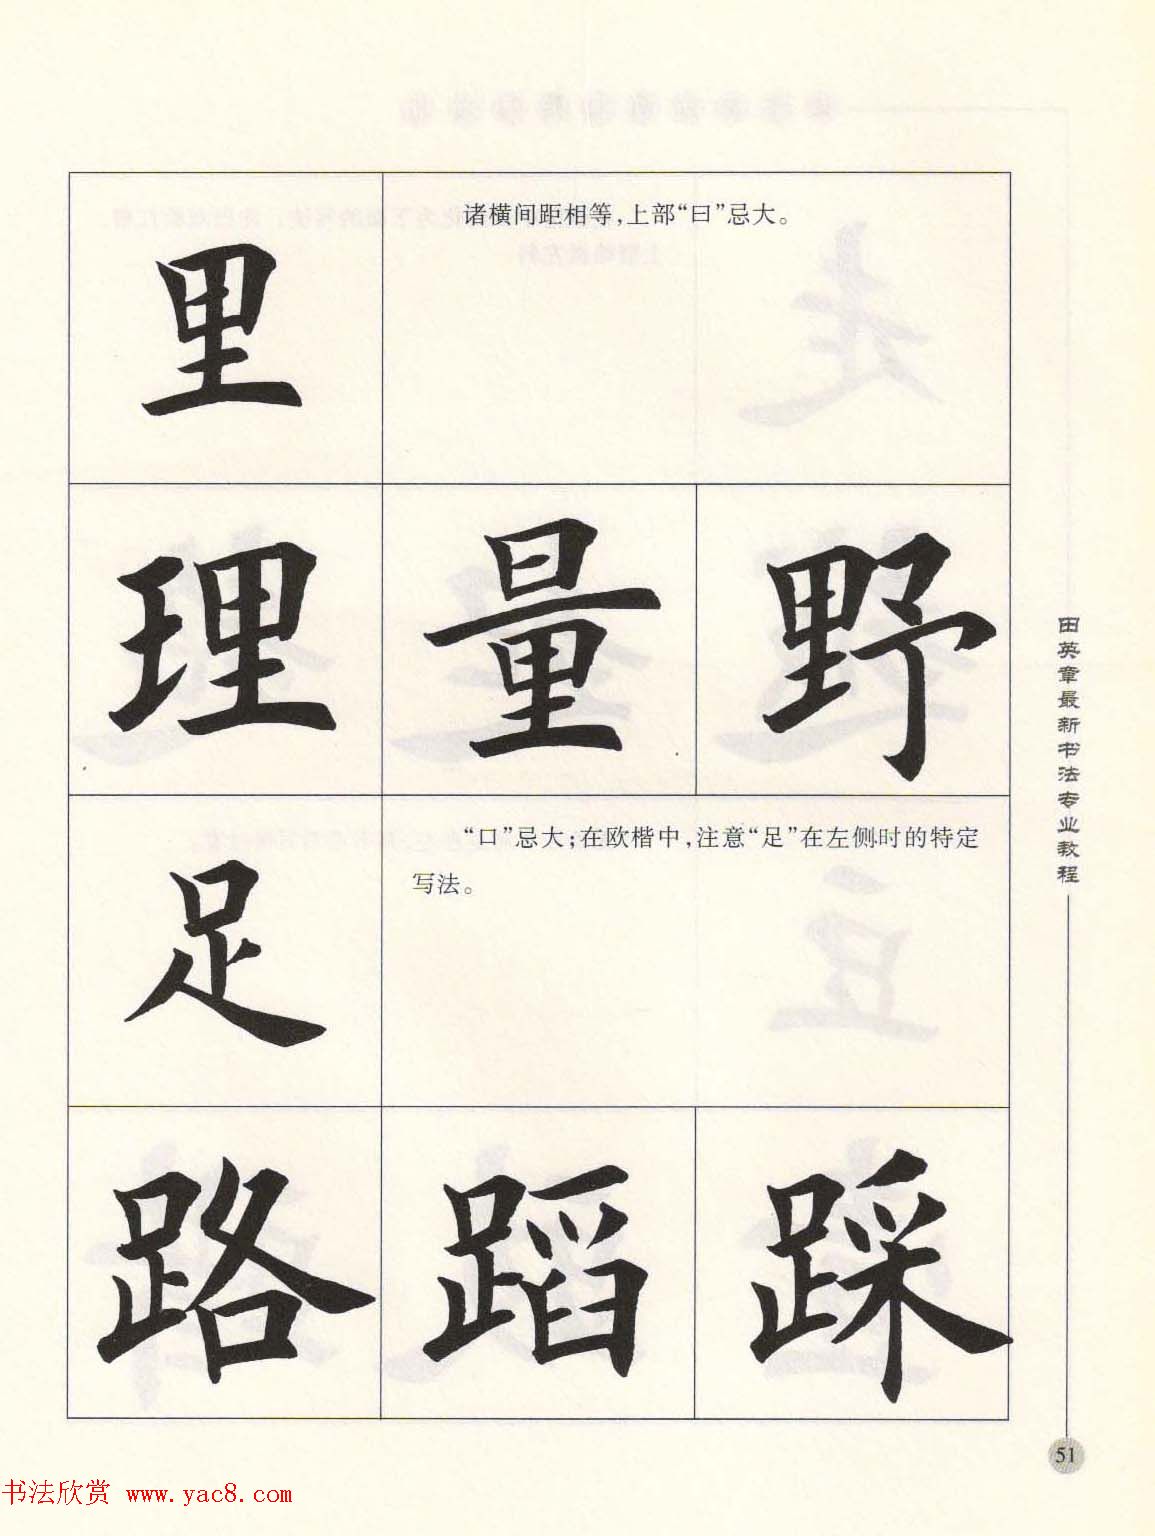 里
诸横间距相等，上部“曰”忌大。
理 量 野
足
“口”忌大；在欧楷中，注意“足”在左侧时的特定
写法。
路 蹈 踩
田英章最新书法专业教程
51
书法欣赏 www.yac8.com